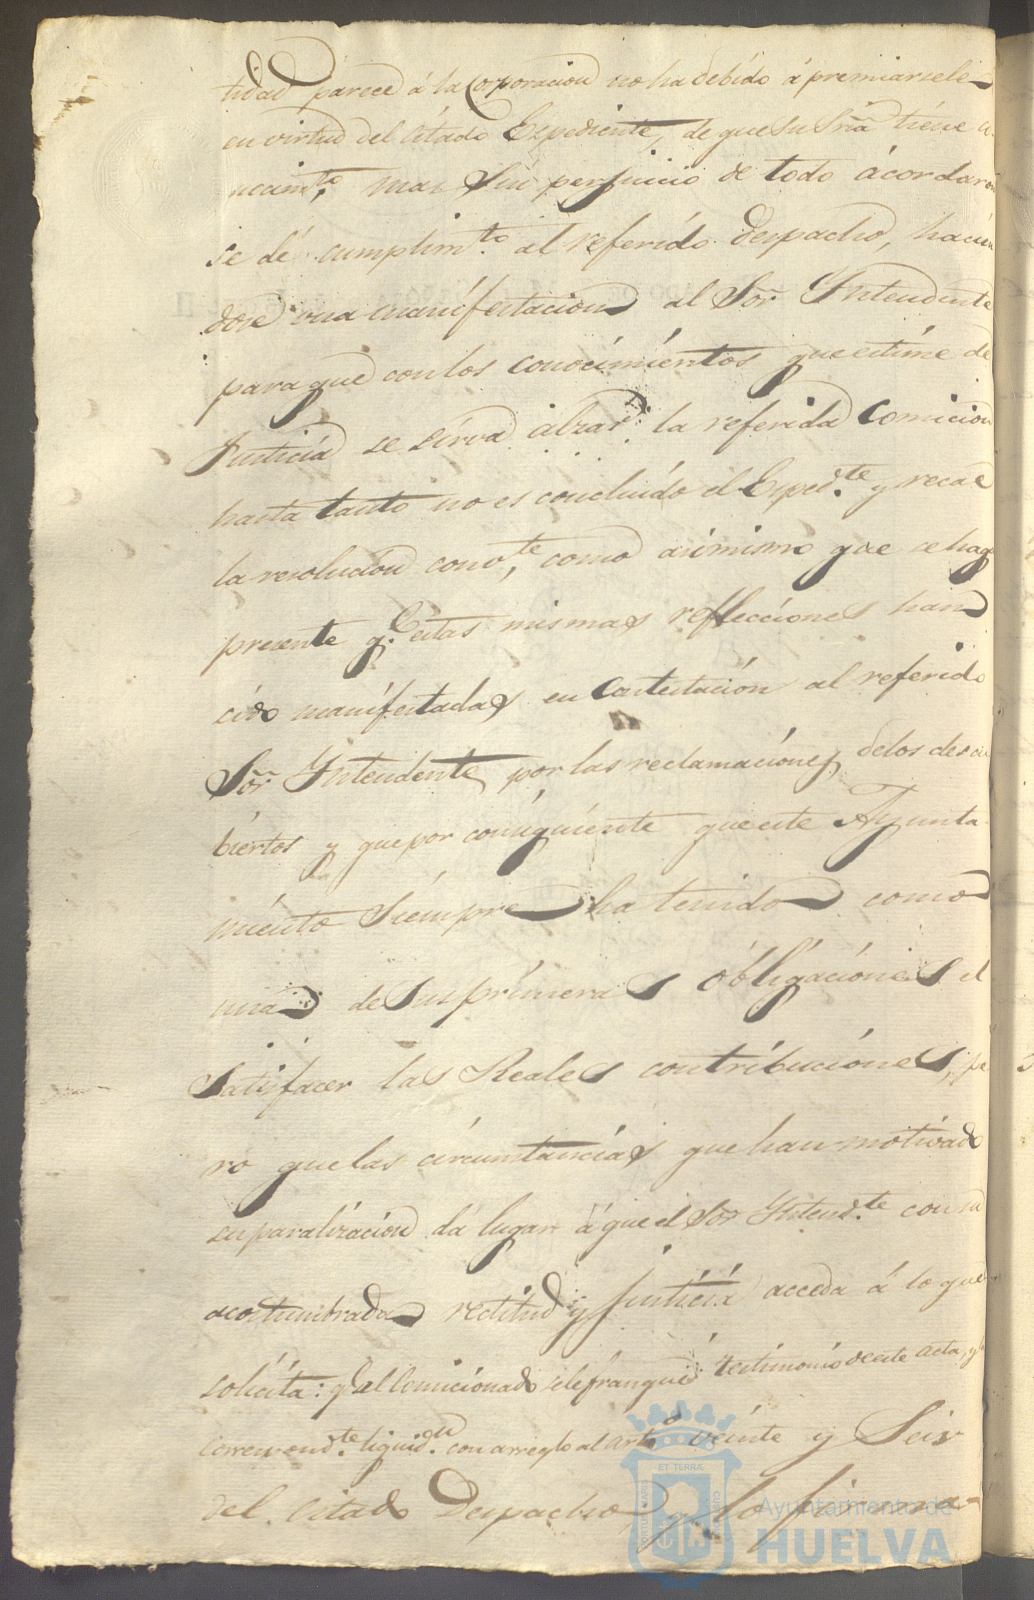 tidad parece á la Corporacion no ha debido á premiarsele
en virtud del citado Expediente, de que Su Sria. tiene co-
nocimto. mas Sin perjuicio de todo ácordaron
se dé cumplimto. al referido despacho, hacien
dose una manifestacion al Sor. Yntendente
para que con los conocimientos que estime de
Justicia se sirva alzar la referida Comicion
hasta tanto no es concluido el Expedte. y recae
la resolucion convte. como asimismo que se haga
presente q. estas mismas reflecciones han
cido manifestadas en Contestación al referido
Sor. Yntendente por las reclamaciones de los descu
biertos y que por consiguiente que este Ayunta-
miento Siempre ha tenido como
una de Sus primeras óbligaciones el
Satisfacer las Reales contribuciones, pe
ro que las circunstancias que han motivado
su paralizacion dá lugar á que el Sor Yntendte. con su
acostumbrada rectitud y justicia acceda á lo que
solicita: q. al Comicionado se le franqué testimonio de este acta, y
correspondte. liquidon. con arreglo al arto. veinte y Seis
del citado Despacho, y lo firma-
ET TERRÆ
Ayuntamiento de
HUELVA